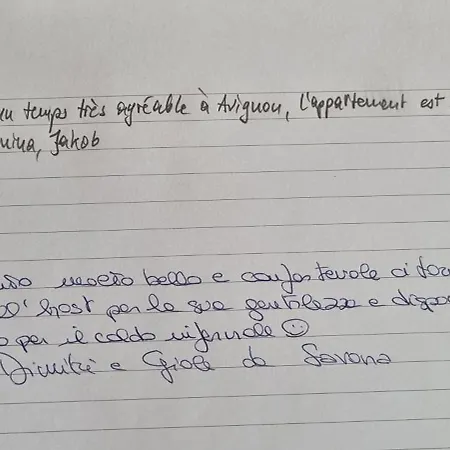 un temps très agréable à Avignon, l'appartement est
Jakob
molto bello e confortevole ci
host per la sua gentilezza e
per il caldo infernale ☺
e Giole da Savona